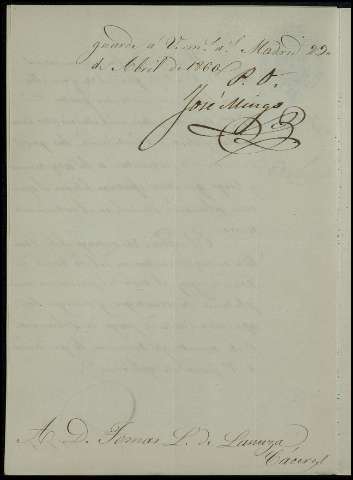 guarde á V. m.s a.s Madrid 22
de Abril de 1860
P. O.
José Mingo
A D. Tomas L. de Lanuza
Cáceres